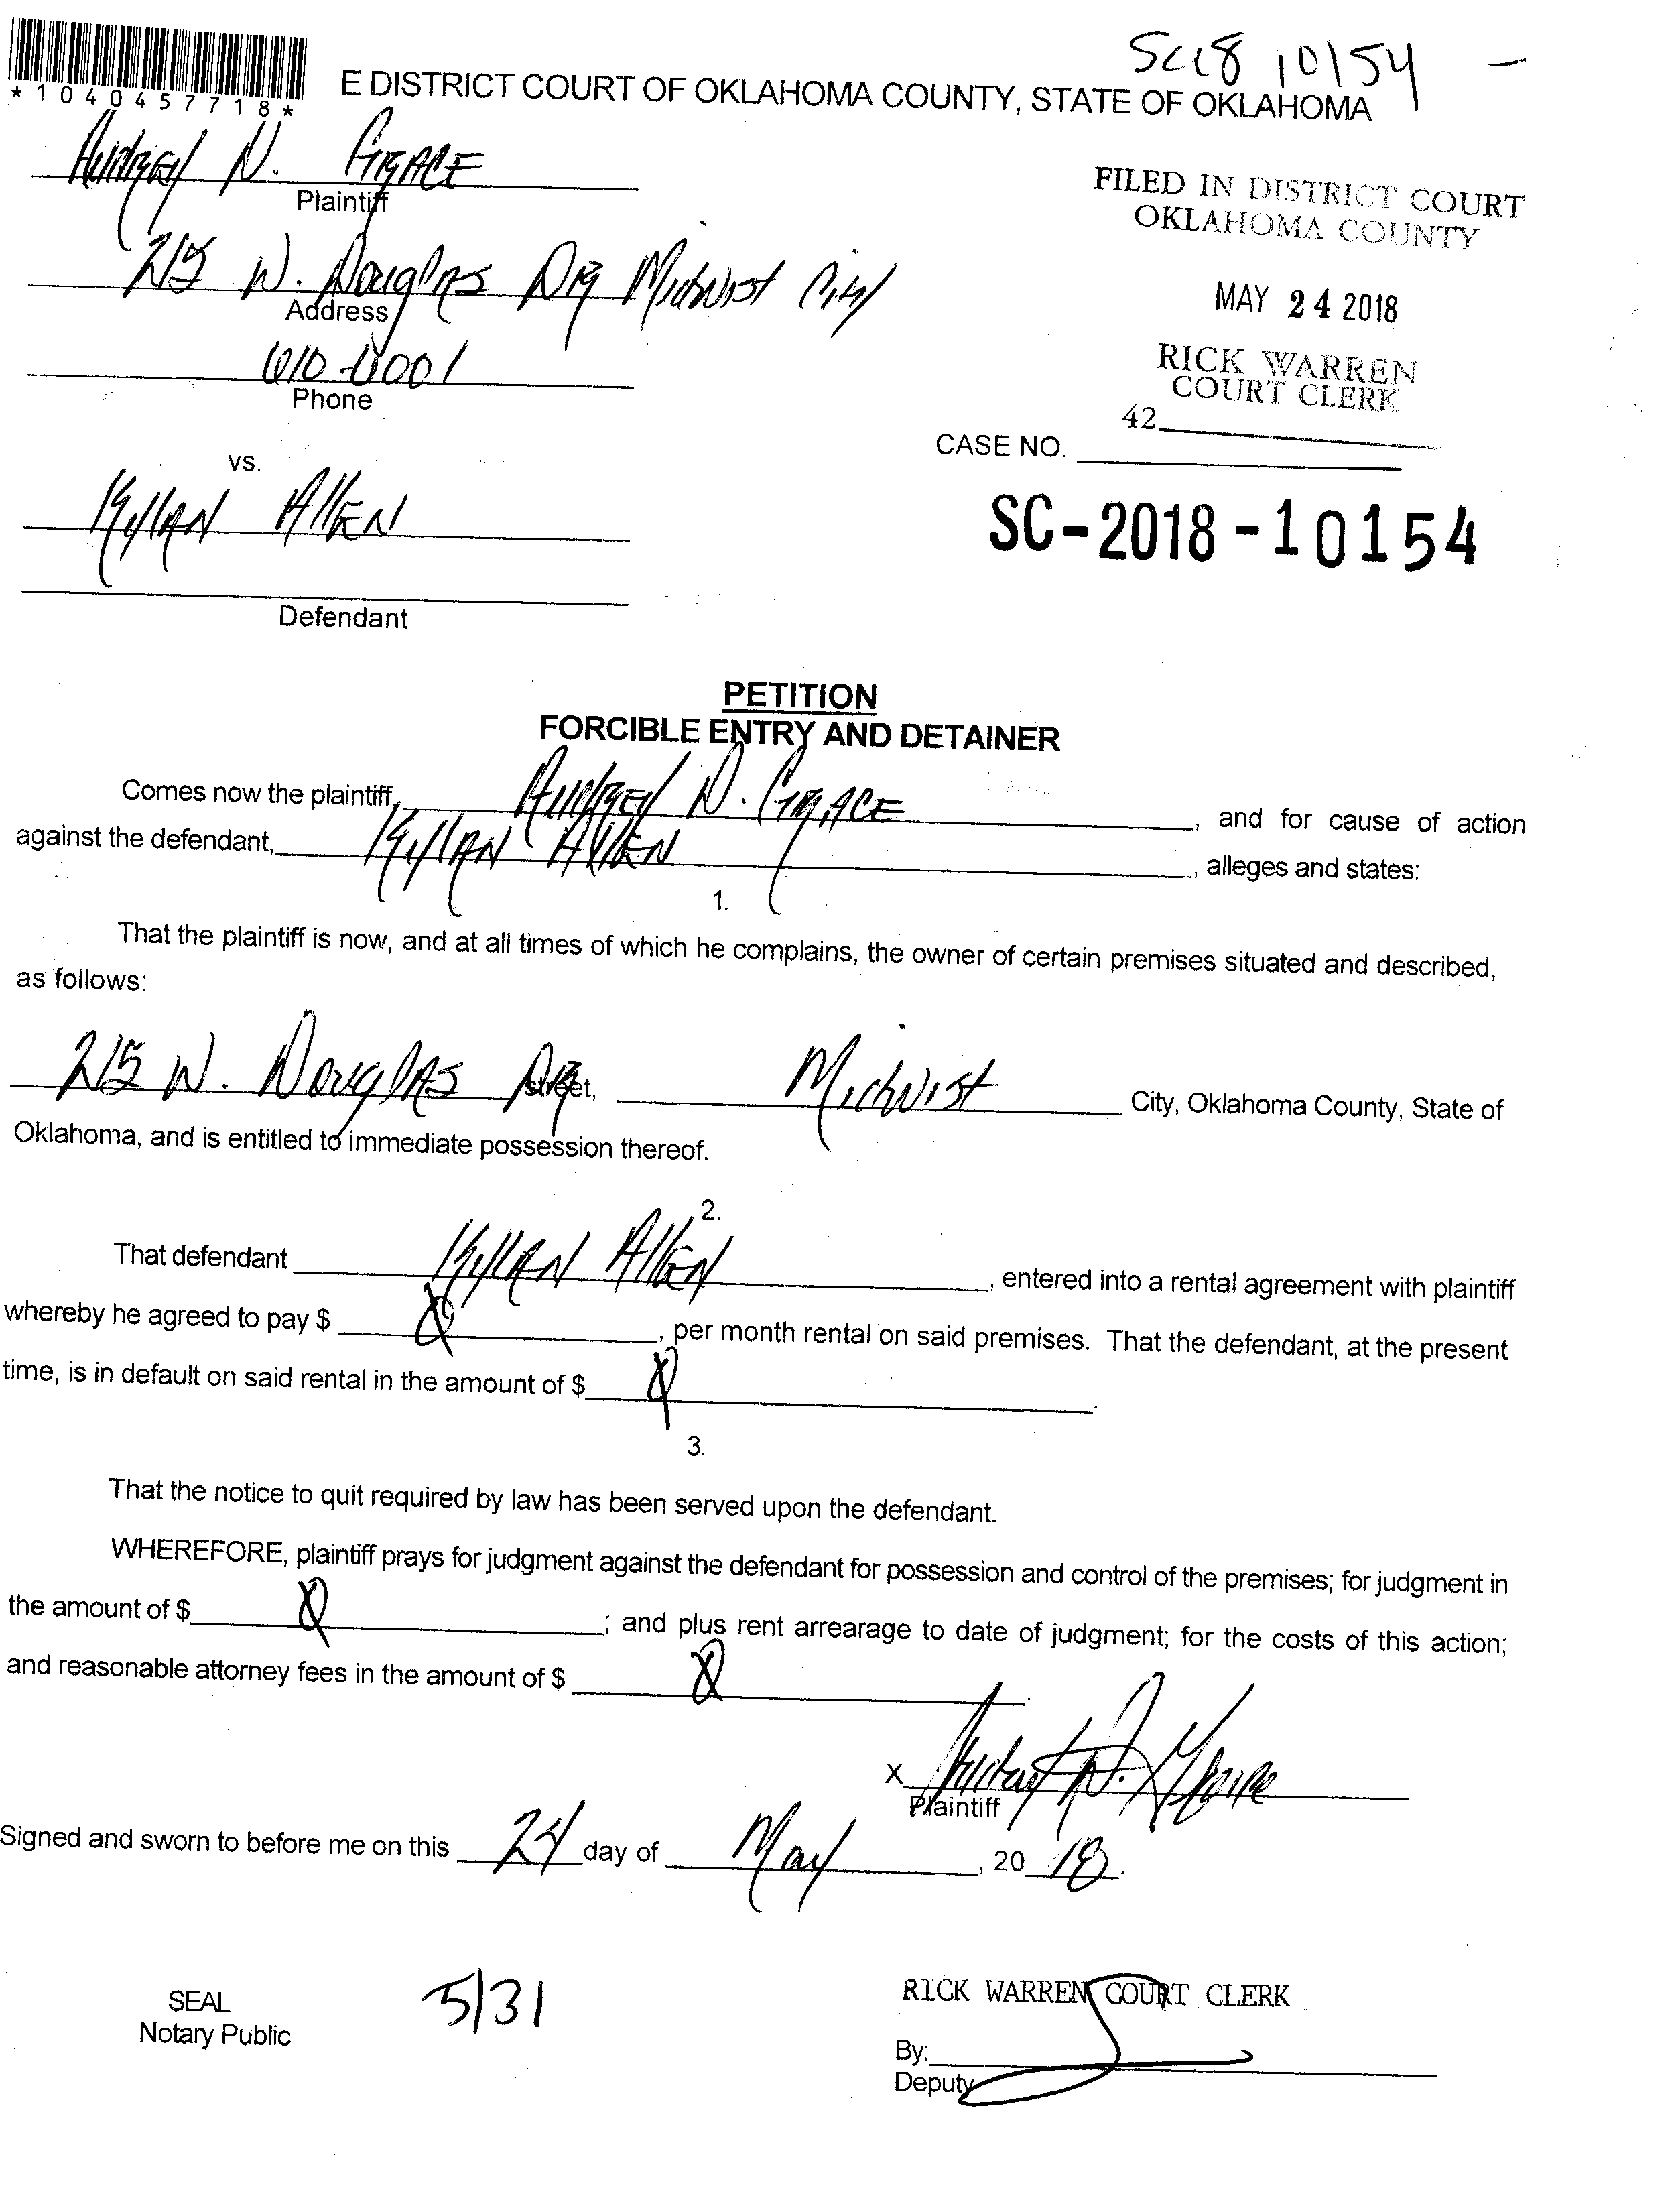 SC18 10154 -
*1040457718*
E DISTRICT COURT OF OKLAHOMA COUNTY, STATE OF OKLAHOMA
Audrey N. Grace
Plaintiff
FILED IN DISTRICT COURT
OKLAHOMA COUNTY
215 W. Douglas DR Midwist City
Address
MAY 24 2018
610-0001
Phone
RICK WARREN
COURT CLERK
42
CASE NO.
vs.
Kyllan Allen
SC-2018-10154
Defendant
PETITION
FORCIBLE ENTRY AND DETAINER
Comes now the plaintiff, Audrey N. Grace, and for cause of action
against the defendant, Kyllan Allen, alleges and states:
1.
That the plaintiff is now, and at all times of which he complains, the owner of certain premises situated and described,
as follows:
215 W. Douglas DR street, Midwist City, Oklahoma County, State of
Oklahoma, and is entitled to immediate possession thereof.
2.
That defendant Kyllan Allen, entered into a rental agreement with plaintiff
whereby he agreed to pay $ , per month rental on said premises. That the defendant, at the present
time, is in default on said rental in the amount of $ .
3.
That the notice to quit required by law has been served upon the defendant.
WHEREFORE, plaintiff prays for judgment against the defendant for possession and control of the premises; for judgment in
the amount of $ ; and plus rent arrearage to date of judgment; for the costs of this action;
and reasonable attorney fees in the amount of $ .
X
Plaintiff
Signed and sworn to before me on this 24 day of May, 20 18.
SEAL
Notary Public
5/31
RICK WARREN COURT CLERK
By:
Deputy